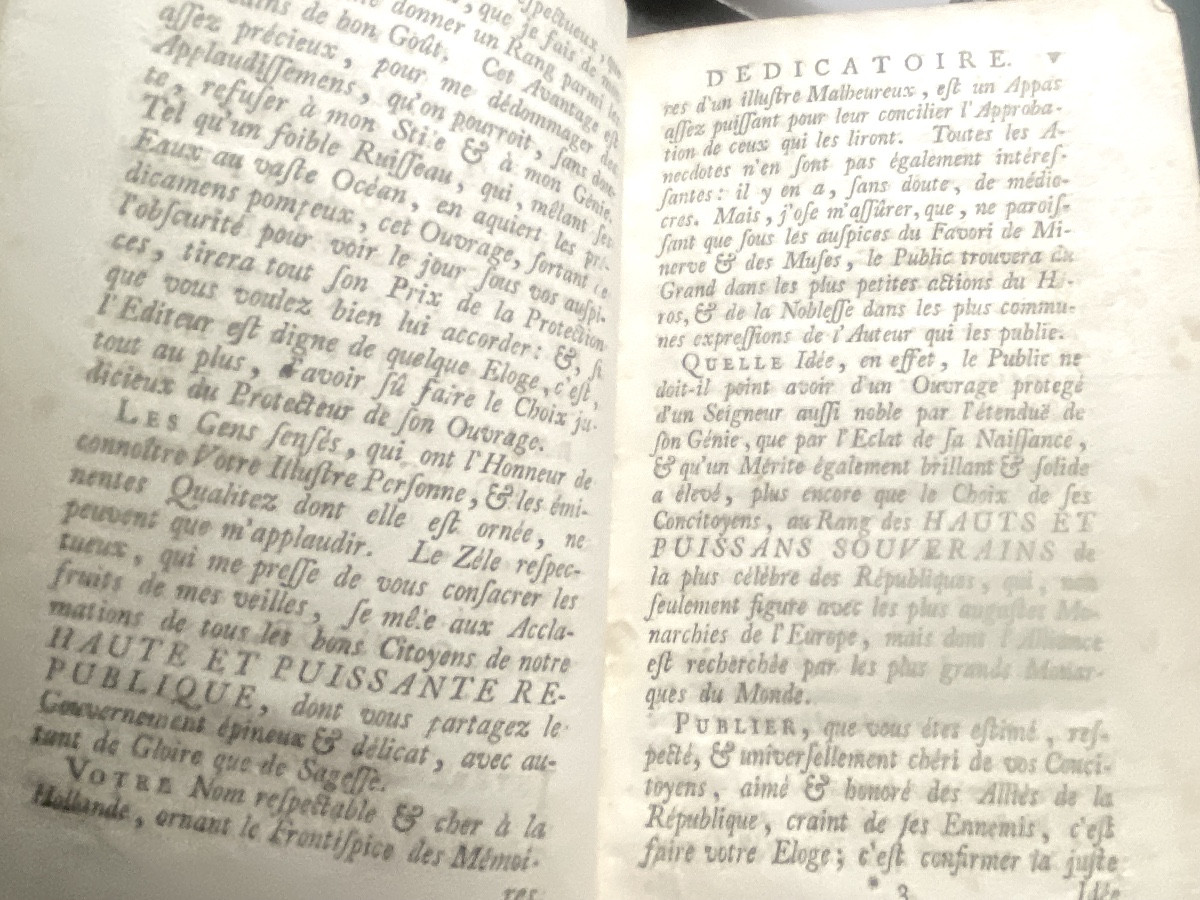 spectueux,
, que je fais de mes
donner un Rang parmi les
de bon Goût. Cet Avantage est
assez précieux, pour me dédommager des
Applaudissemens, qu'on pourroit, sans dou-
te, refuser à mon Stile & à mon Génie.
Tel qu'un foible Ruisseau, qui, mêlant ses
Eaux au vaste Océan, en aquiert les pré-
dicamens pompeux, cet Ouvrage, sortant de
l'obscurité pour voir le jour sous vos auspi-
ces, tirera tout son Prix de la Protection
que vous voulez bien lui accorder: &, si
l'Editeur est digne de quelque Eloge, c'est,
tout au plus, d'avoir sû faire le Choix ju-
dicieux du Protecteur de son Ouvrage.
LES Gens sensés, qui ont l'Honneur de
connoître Votre Illustre Personne, & les émi-
nentes Qualitez dont elle est ornée, ne
peuvent que m'applaudir. Le Zéle respec-
tueux, qui me presse de vous consacrer les
fruits de mes veilles, se mêle aux Accla-
mations de tous les bons Citoyens de notre
HAUTE ET PUISSANTE RE-
PUBLIQUE, dont vous partagez le
Gouvernement épineux & délicat, avec au-
tant de Gloire que de Sagesse.
VOTRE Nom respectable & cher à la
Hollande, ornant le Frontispice des Mémoi-
res
DEDICATOIRE.
res d'un illustre Malheureux, est un Appas
assez puissant pour leur concilier l'Approba-
tion de ceux qui les liront. Toutes les A-
necdotes n'en sont pas également intéres-
santes: il y en a, sans doute, de médio-
cres. Mais, j'ose m'assûrer, que, ne parois-
sant que sous les auspices du Favori de Mi-
nerve & des Muses, le Public trouvera du
Grand dans les plus petites actions du Hé-
ros, & de la Noblesse dans les plus commu-
nes expressions de l'Auteur qui les publie.
QUELLE Idée, en effet, le Public ne
doit-il point avoir d'un Ouvrage protegé
d'un Seigneur aussi noble par l'étenduë de
son Génie, que par l'Eclat de sa Naissance,
& qu'un Mérite également brillant & solide
a élevé, plus encore que le Choix de ses
Concitoyens, au Rang des HAUTS ET
PUISSANS SOUVERAINS de
la plus célèbre des Républiques, qui, non
seulement figure avec les plus augustes Mo-
narchies de l'Europe, mais dont l'Alliance
est recherchée par les plus grands Monar-
ques du Monde.
PUBLIER, que vous étes estimé, res-
pecté, & universellement chéri de vos Conci-
toyens, aimé & honoré des Alliés de la
République, craint de ses Ennemis, c'est
faire votre Eloge; c'est confirmer la juste
* 3 Idée